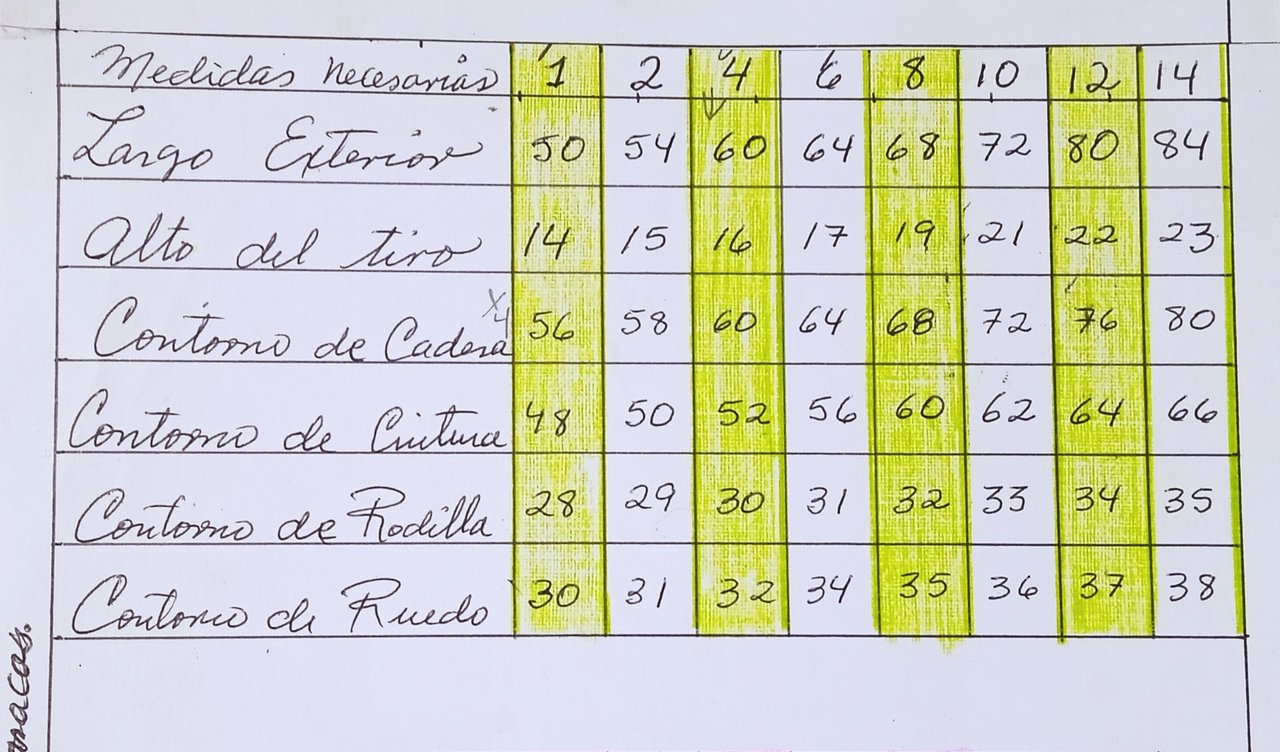 Medidas necesarias 1 2 4 6 8 10 12 14
Largo Exterior 50 54 60 64 68 72 80 84
Alto del tiro 14 15 16 17 19 21 22 23
x4
Contorno de Cadera 56 58 60 64 68 72 76 80
Contorno de Cintura 48 50 52 56 60 62 64 66
Contorno de Rodilla 28 29 30 31 32 33 34 35
Contorno de Ruedo 30 31 32 34 35 36 37 38